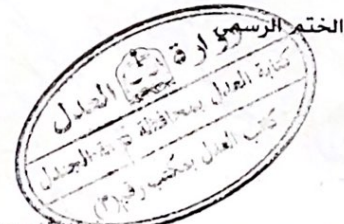 الختم الرسمي
وزارة العدل
كتابة العدل بمحافظة دومة الجندل
كاتب العدل بمكتب رقم (٣)